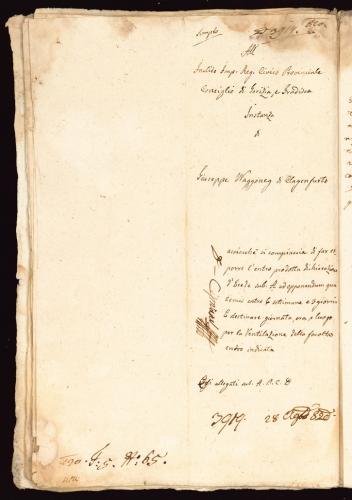 simplo
All
Inclito Imp: Reg: Civico Provinciale
Consiglio di Gorizia, e Gradisca
Instanza
di
Giuseppe Waggoneg di Clagenfurto
accioché si compiaccia di far es
porre l'entro prodotta dichiarazione
d'Erede sub. A ad opponendum qua
entro 6 settimane e 3 giorni
E destinare giornata, ora, e luogo
per la Ventilazione della facoltà
entro indicata
Cogli allegati sub. A. B. C. D
3919. 28
No: 65.